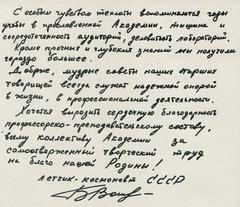 С особым чувством теплоты вспоминаются годы
учебы в прославленной Академии, тишина и
сосредоточенность аудиторий, деловитость лабораторий.
Кроме прочных и глубоких знаний мы получили
гораздо большее.
Добрые, мудрые советы наших старших
товарищей всегда служат надежной опорой
в жизни, в профессиональной деятельности.
Хочется выразить сердечную благодарность
профессорско-преподавательскому составу,
всему коллективу Академии за
самоотверженный творческий труд
на благо нашей Родины!
летчик-космонавт СССР